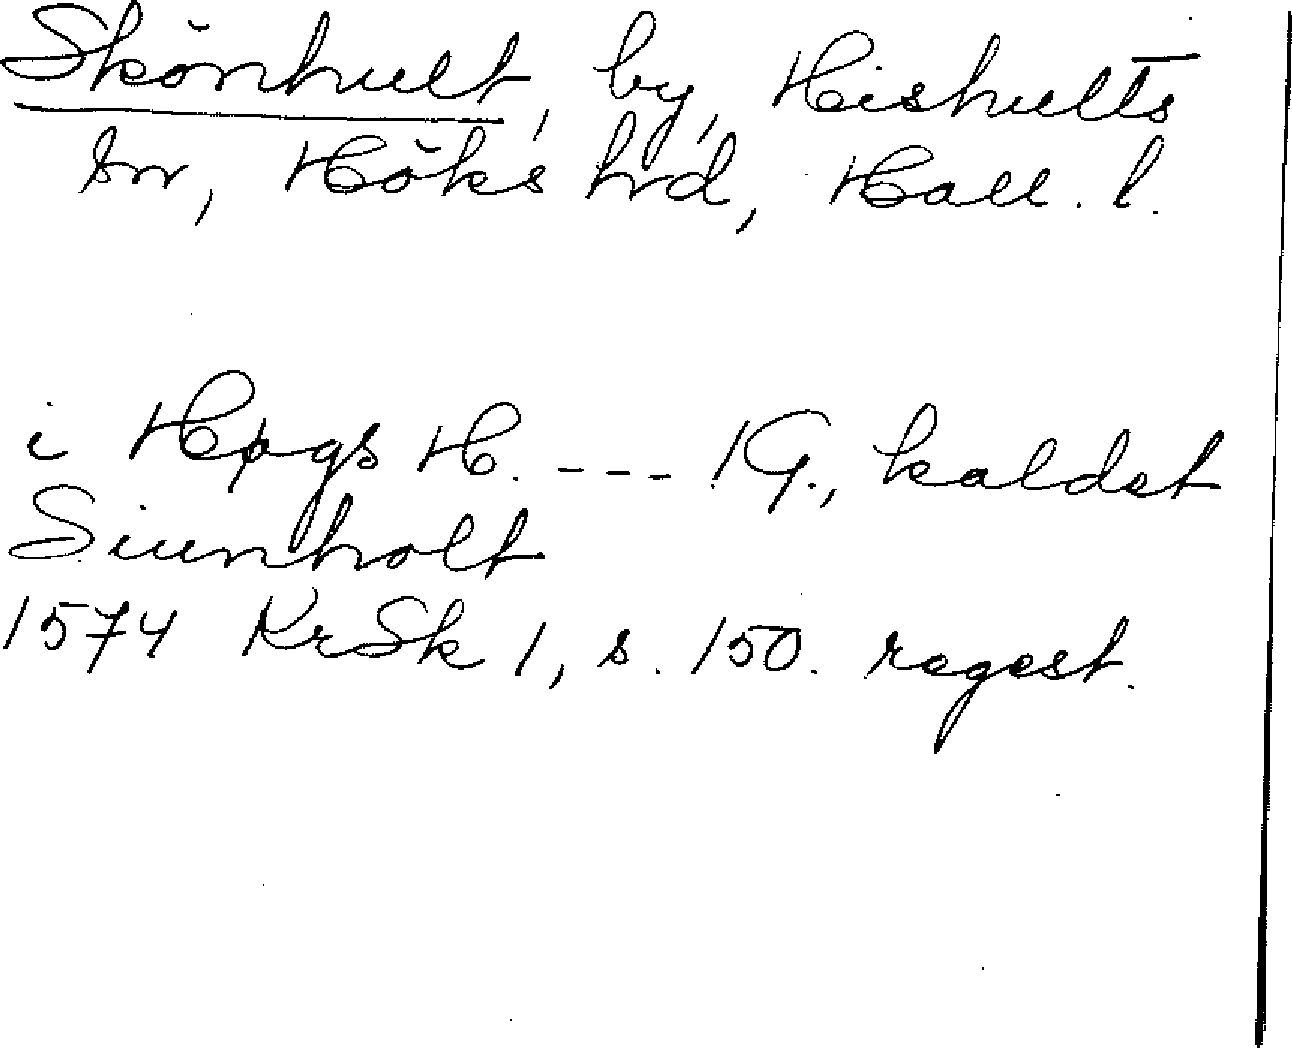 Skönhult, by, Hishults
sn, Höks hrd, Hall. l.
i Høgs H. --- 1 G., kaldet
Siunholt
1574 KrSk 1, s. 150. regest.